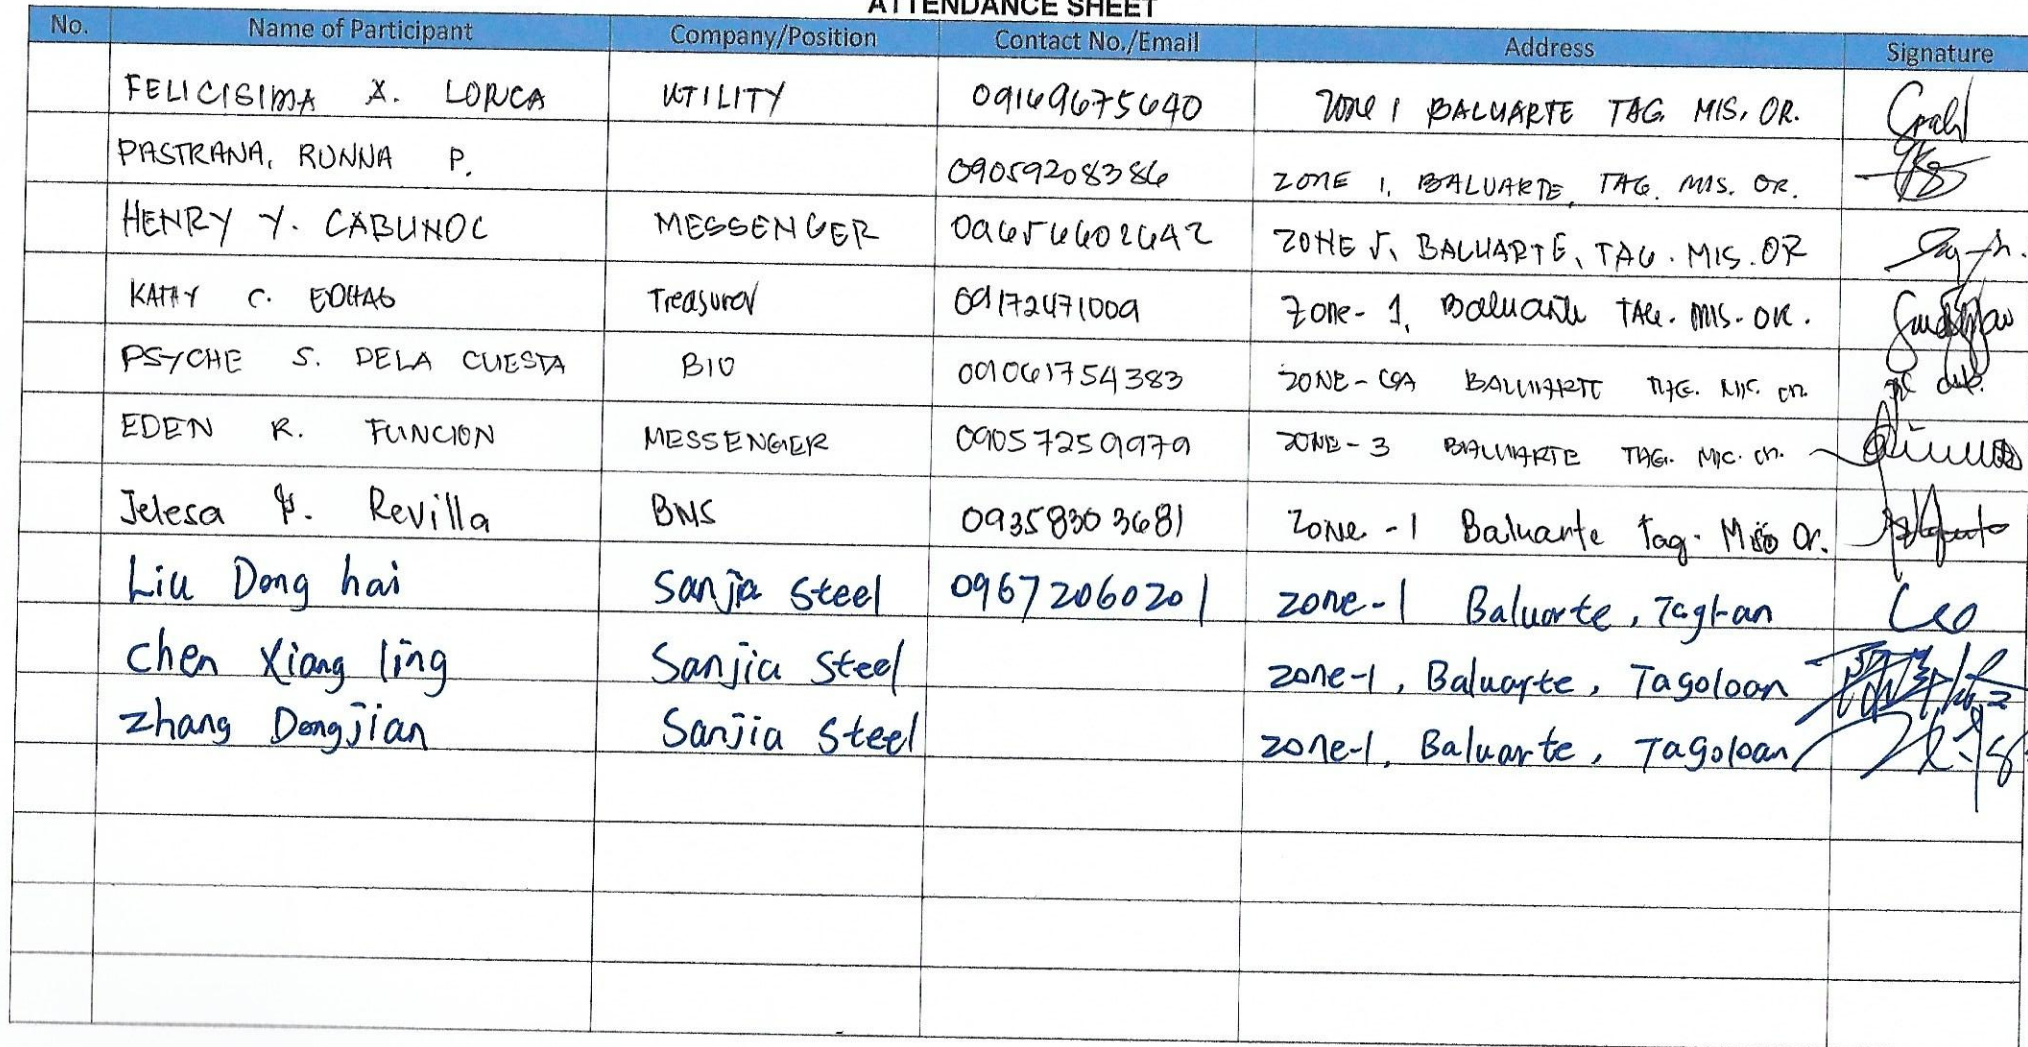 ATTENDANCE SHEET
No. Name of Participant Company/Position Contact No./Email Address Signature
FELICISIMA A. LORCA UTILITY 09169675640 ZONE 1 BALUARTE TAG. MIS. OR.
PASTRANA, RUNNA P. 09059208386 ZONE 1, BALUARTE, TAG. MIS. OR.
HENRY Y. CABUNOC MESSENGER 09656602642 ZONE 5, BALUARTE, TAG. MIS. OR
KATHY C. Treasurer 09172471009 Zone-1, Baluarte TAG. MIS. OR.
PSYCHE S. DELA CUESTA BIO 091061754383 ZONE- BALUARTE TAG. MIS. OR.
EDEN R. FUNCION MESSENGER 09057259979 ZONE-3 BALUARTE TAG. MIS. OR.
Jelesa P. Revilla BNS 09358303681 Zone-1 Baluarte Tag. Mis Or.
Liu Dong hai Sanjia Steel 09672060201 zone-1 Baluarte, Leo
Chen Xiang ling Sanjia Steel zone-1, Baluarte, Tagoloan
Zhang Dongjian Sanjia Steel zone-1, Baluarte, Tagoloan